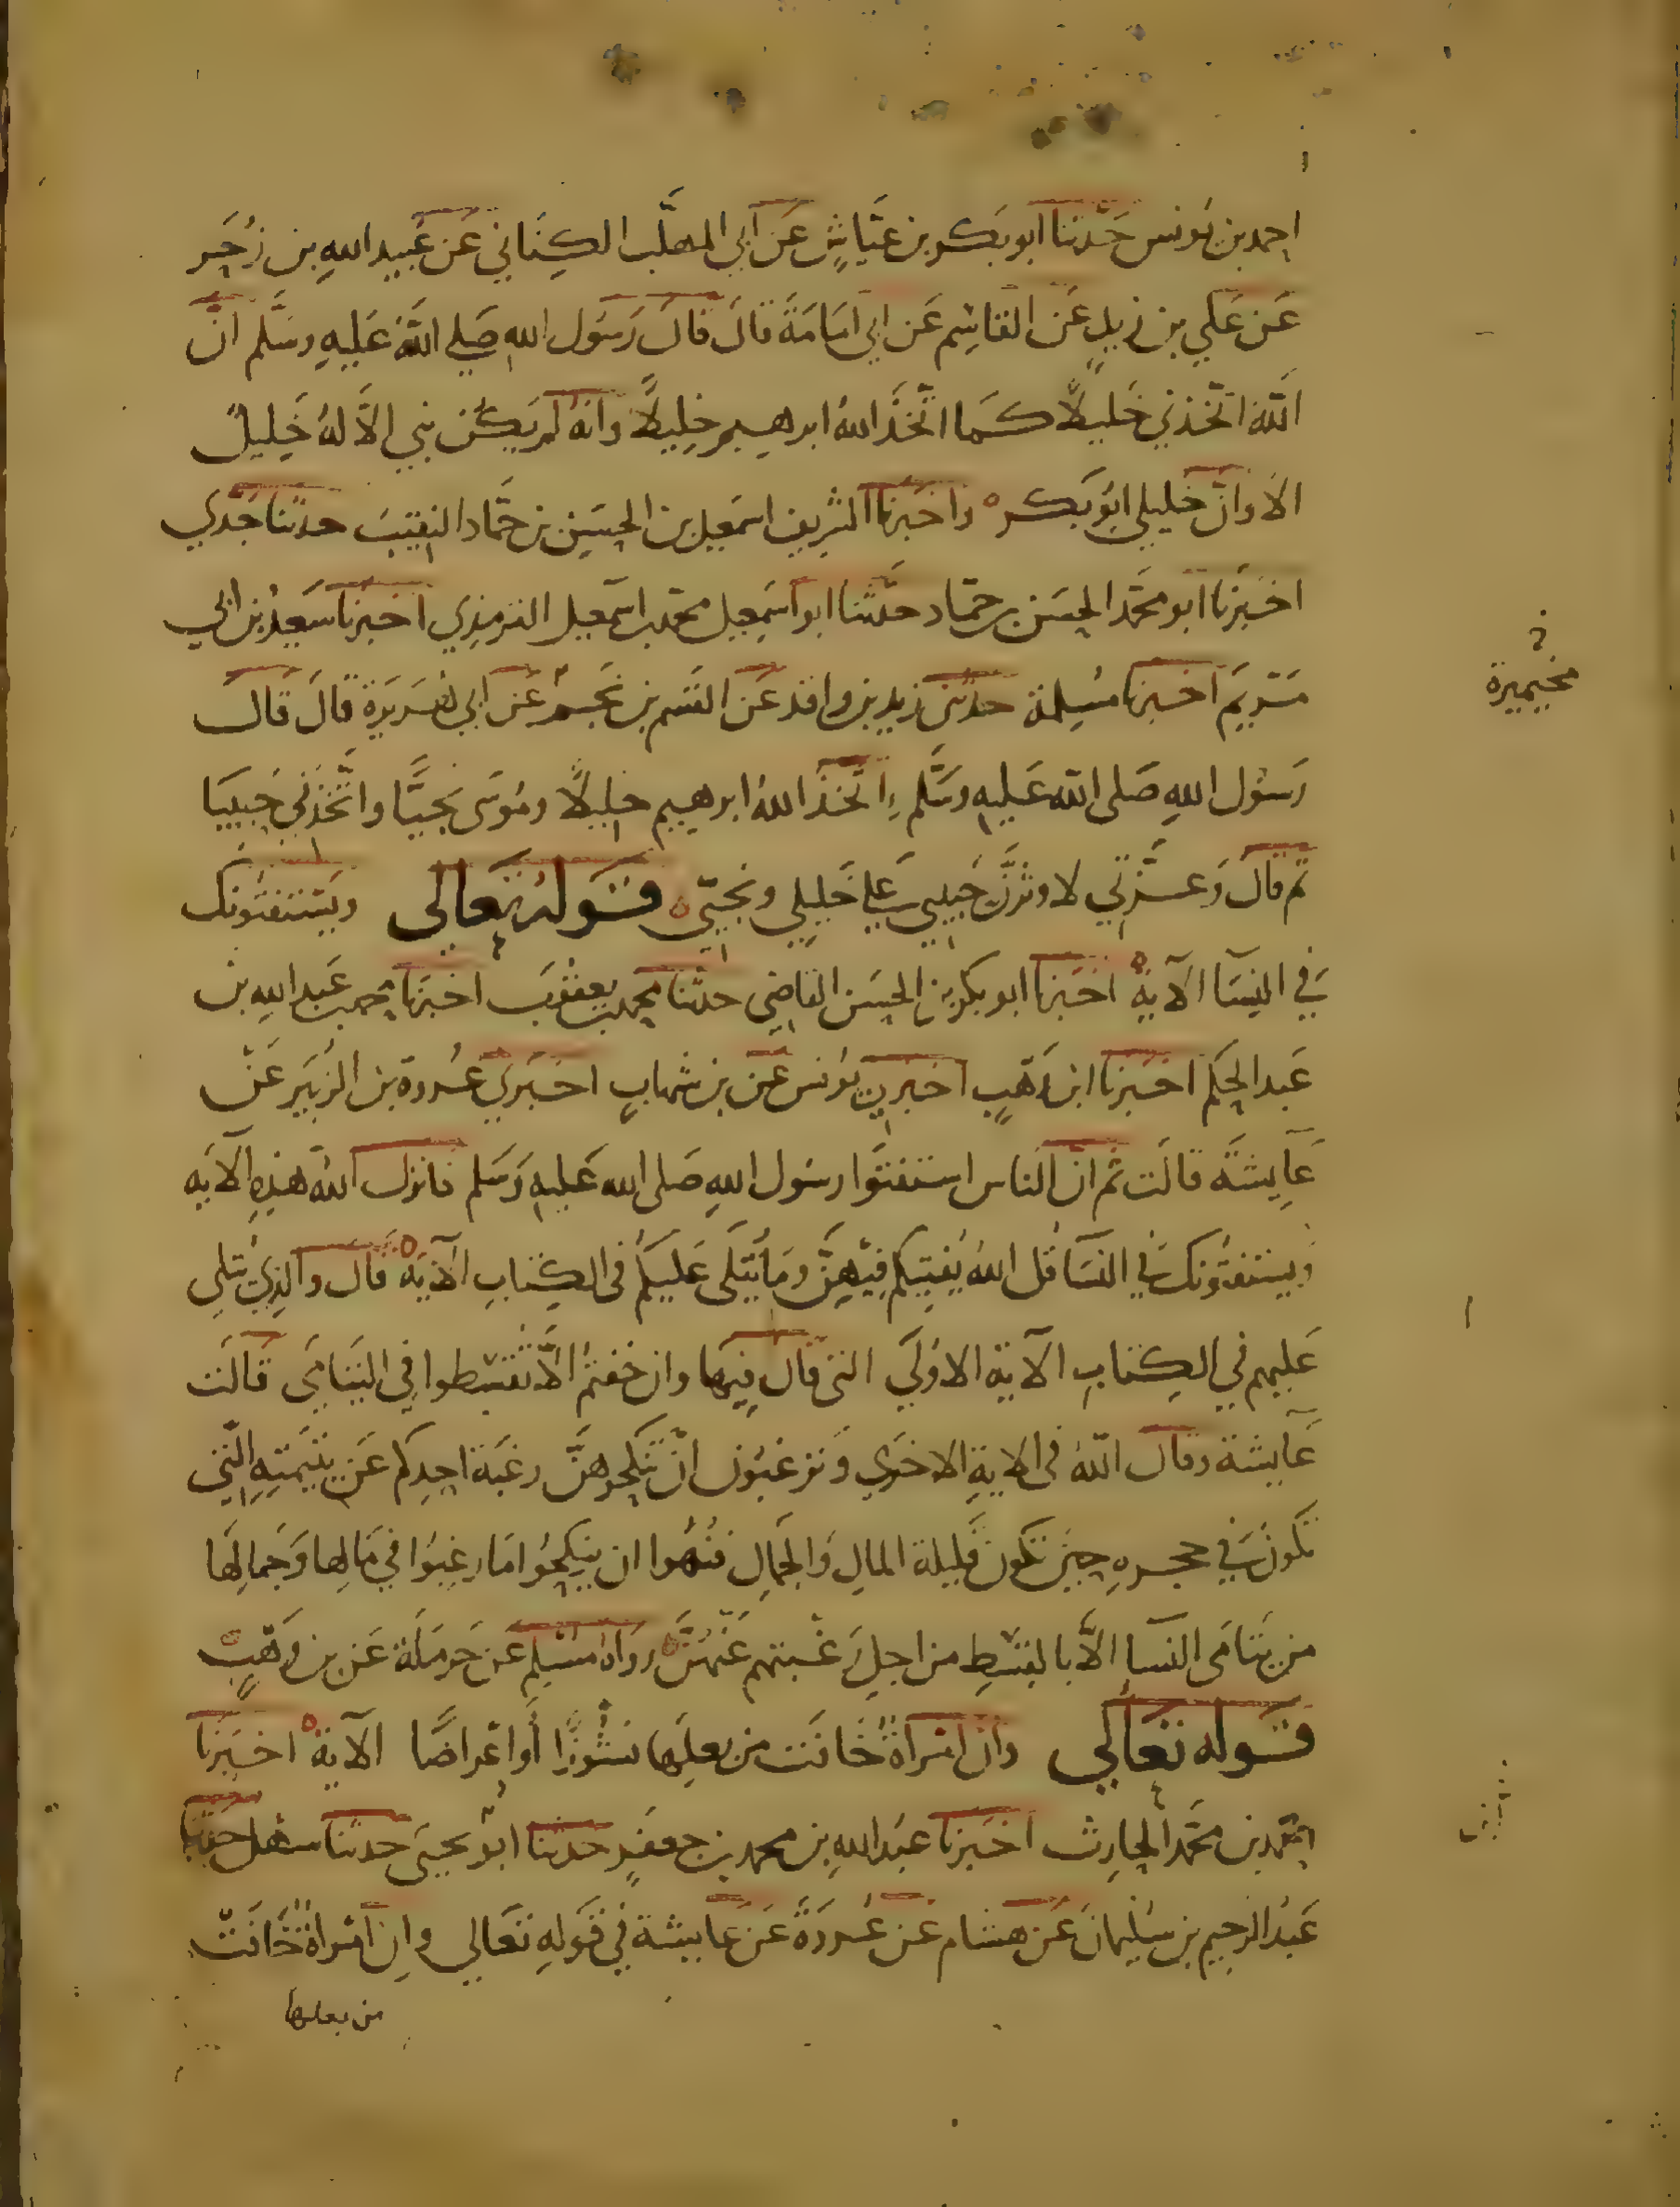 احمد بن يونس حدثنا ابو بكر بن عياش عن ابي المهلب الكناني عن عبيد الله بن زحر
عن علي بن يزيد عن القاسم عن ابي امامة قال قال رسول الله صلى الله عليه وسلم ان
الله اتخذني خليلا كما اتخذ الله ابرهيم خليلا وانه لم يكن نبي الا له خليل
الا وان خليلي ابو بكر واخبرنا الشريف اسمعيل بن الحسين بن حماد النقيب حدثنا جدي
اخبرنا ابو محمد الحسن بن حماد حدثنا ابو اسمعيل محمد بن اسمعيل الترمذي اخبرنا سعيد بن ابي
مريم اخبرنا مسلمة حدثني زيد بن واقد عن القسم بن عن ابي هريرة قال قال
مخيمرة
رسول الله صلى الله عليه وسلم اتخذ الله ابرهيم خليلا وموسى نجيا واتخذني حبيبا
ثم قال وعزتي لاوثرن حبيبي على خليلي ونجيي قوله تعالى ويستفتونك
في النسآ الآية اخبرنا ابو بكر بن الحسن القاضي حدثنا محمد بن يعقوب اخبرنا محمد بن عبد الله بن
عبد الحكم اخبرنا ابن وهب اخبرني يونس عن بن شهاب اخبرني عروة بن الزبير عن
عايشة قالت ثم ان الناس استفتوا رسول الله صلى الله عليه وسلم فانزل الله هذه الآية
ويستفتونك في النسآ قل الله يفتيكم فيهن وما يتلى عليكم في الكتاب الآية قال والذي يتلى
عليهم في الكتاب الآية الاولى التي قال فيها وان خفتم الا تقسطوا في اليتامى قالت
عايشة وقال الله في الاية الاخرى وترغبون ان تنكحوهن رغبة احدكم عن يتيمته التي
تكون في حجره حين تكون قليلة المال والجمال فنهوا ان ينكحوا ما رغبوا في مالها وجمالها
من يتامى النسآ الا بالقسط من اجل رغبتهم عنهن رواه مسلم عن حرملة عن بن وهب
قوله تعالى وان امراة خافت من بعلها نشوزا او اعراضا الآية اخبرنا
احمد بن محمد الحارث اخبرنا عبد الله بن محمد بن جعفر حدثنا ابو يحيى حدثنا سهل حدثنا
عبد الرحيم بن سليمان عن هشام عن عروة عن عايشة في قوله تعالى وان امراة خافت
من بعلها